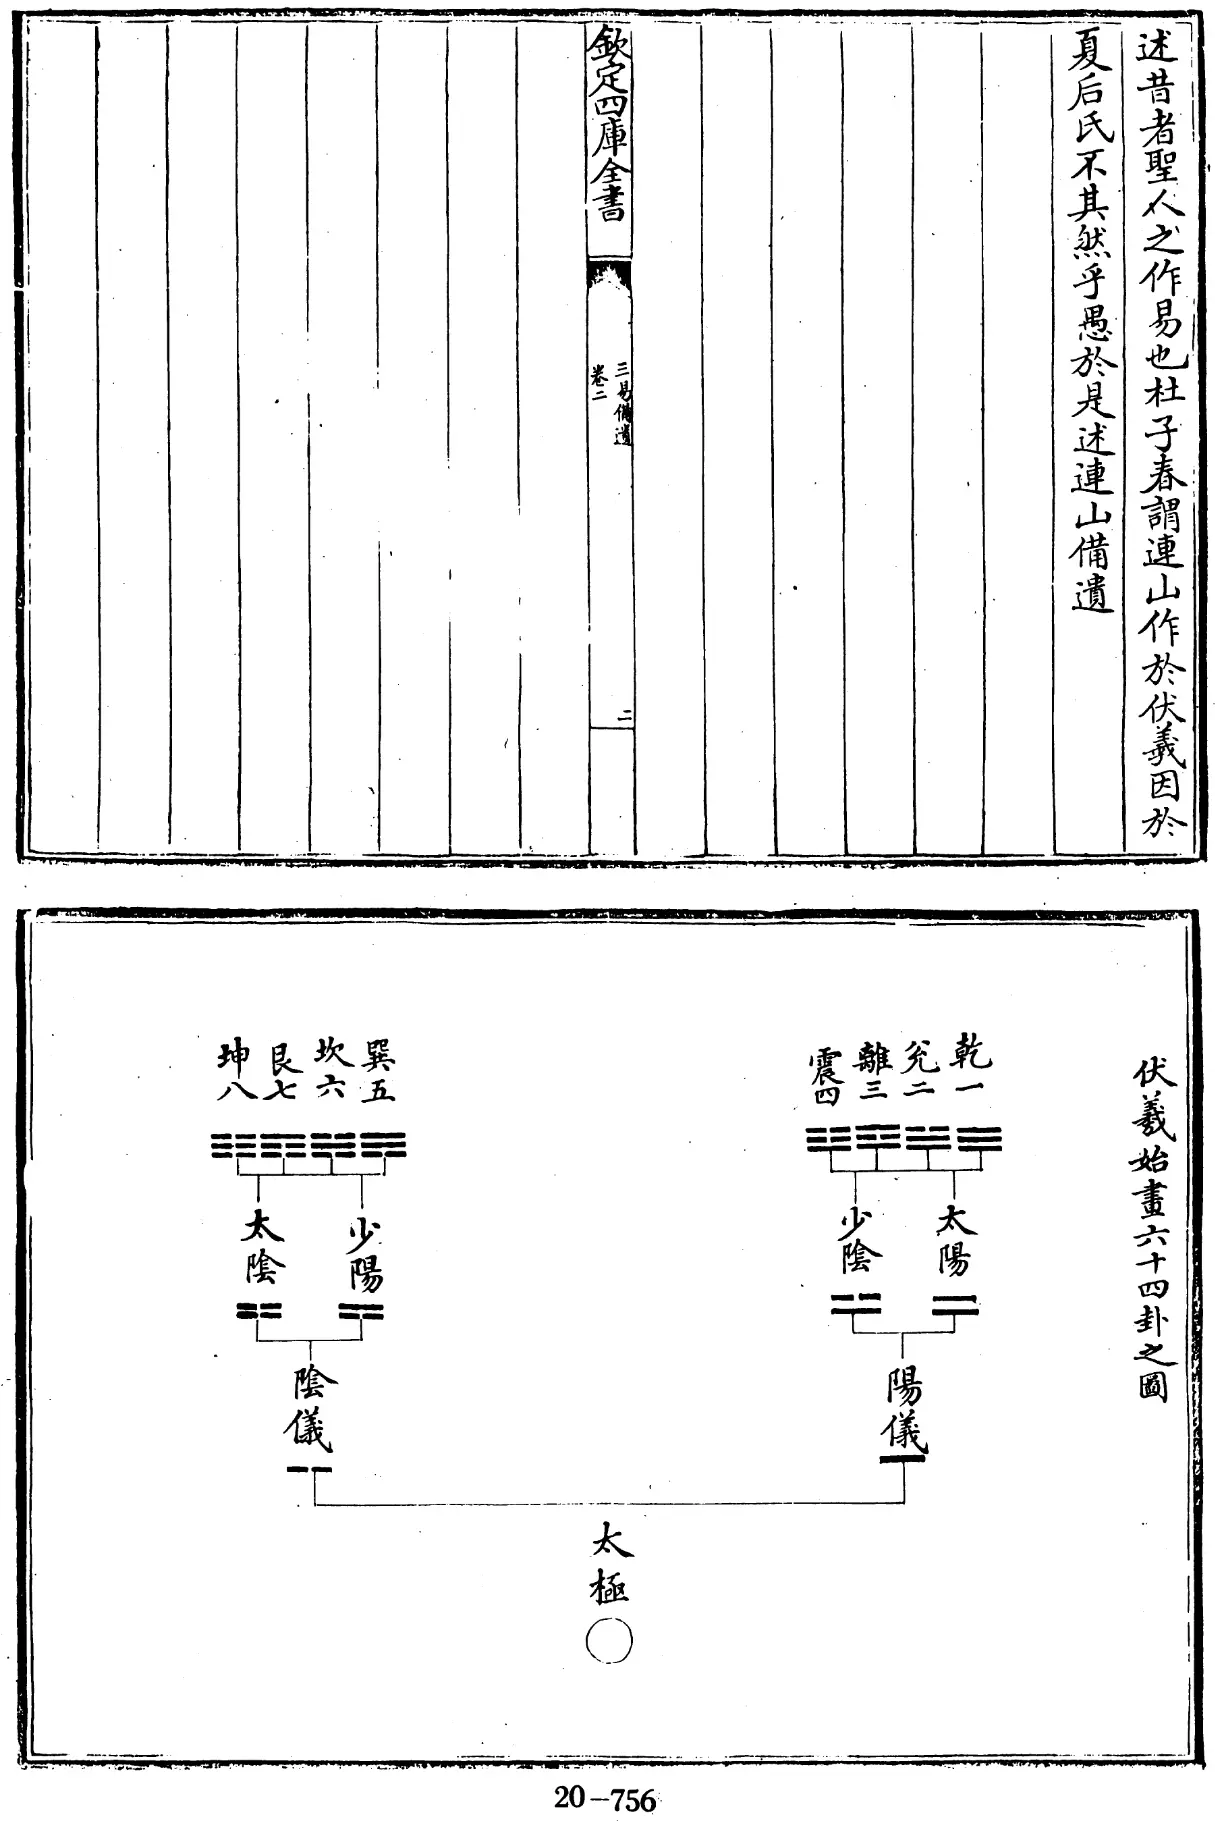 述昔者聖人之作易也杜子春謂連山作於伏羲因於
夏后氏不其然乎愚於是述連山備遺
欽定四庫全書
三易備遺
卷二
二
伏羲始畫六十四卦之圖
乾一
兌二
離三
震四
巽五
坎六
艮七
坤八
太陽
少陰
少陽
太陰
陽儀
陰儀
太極
20-756